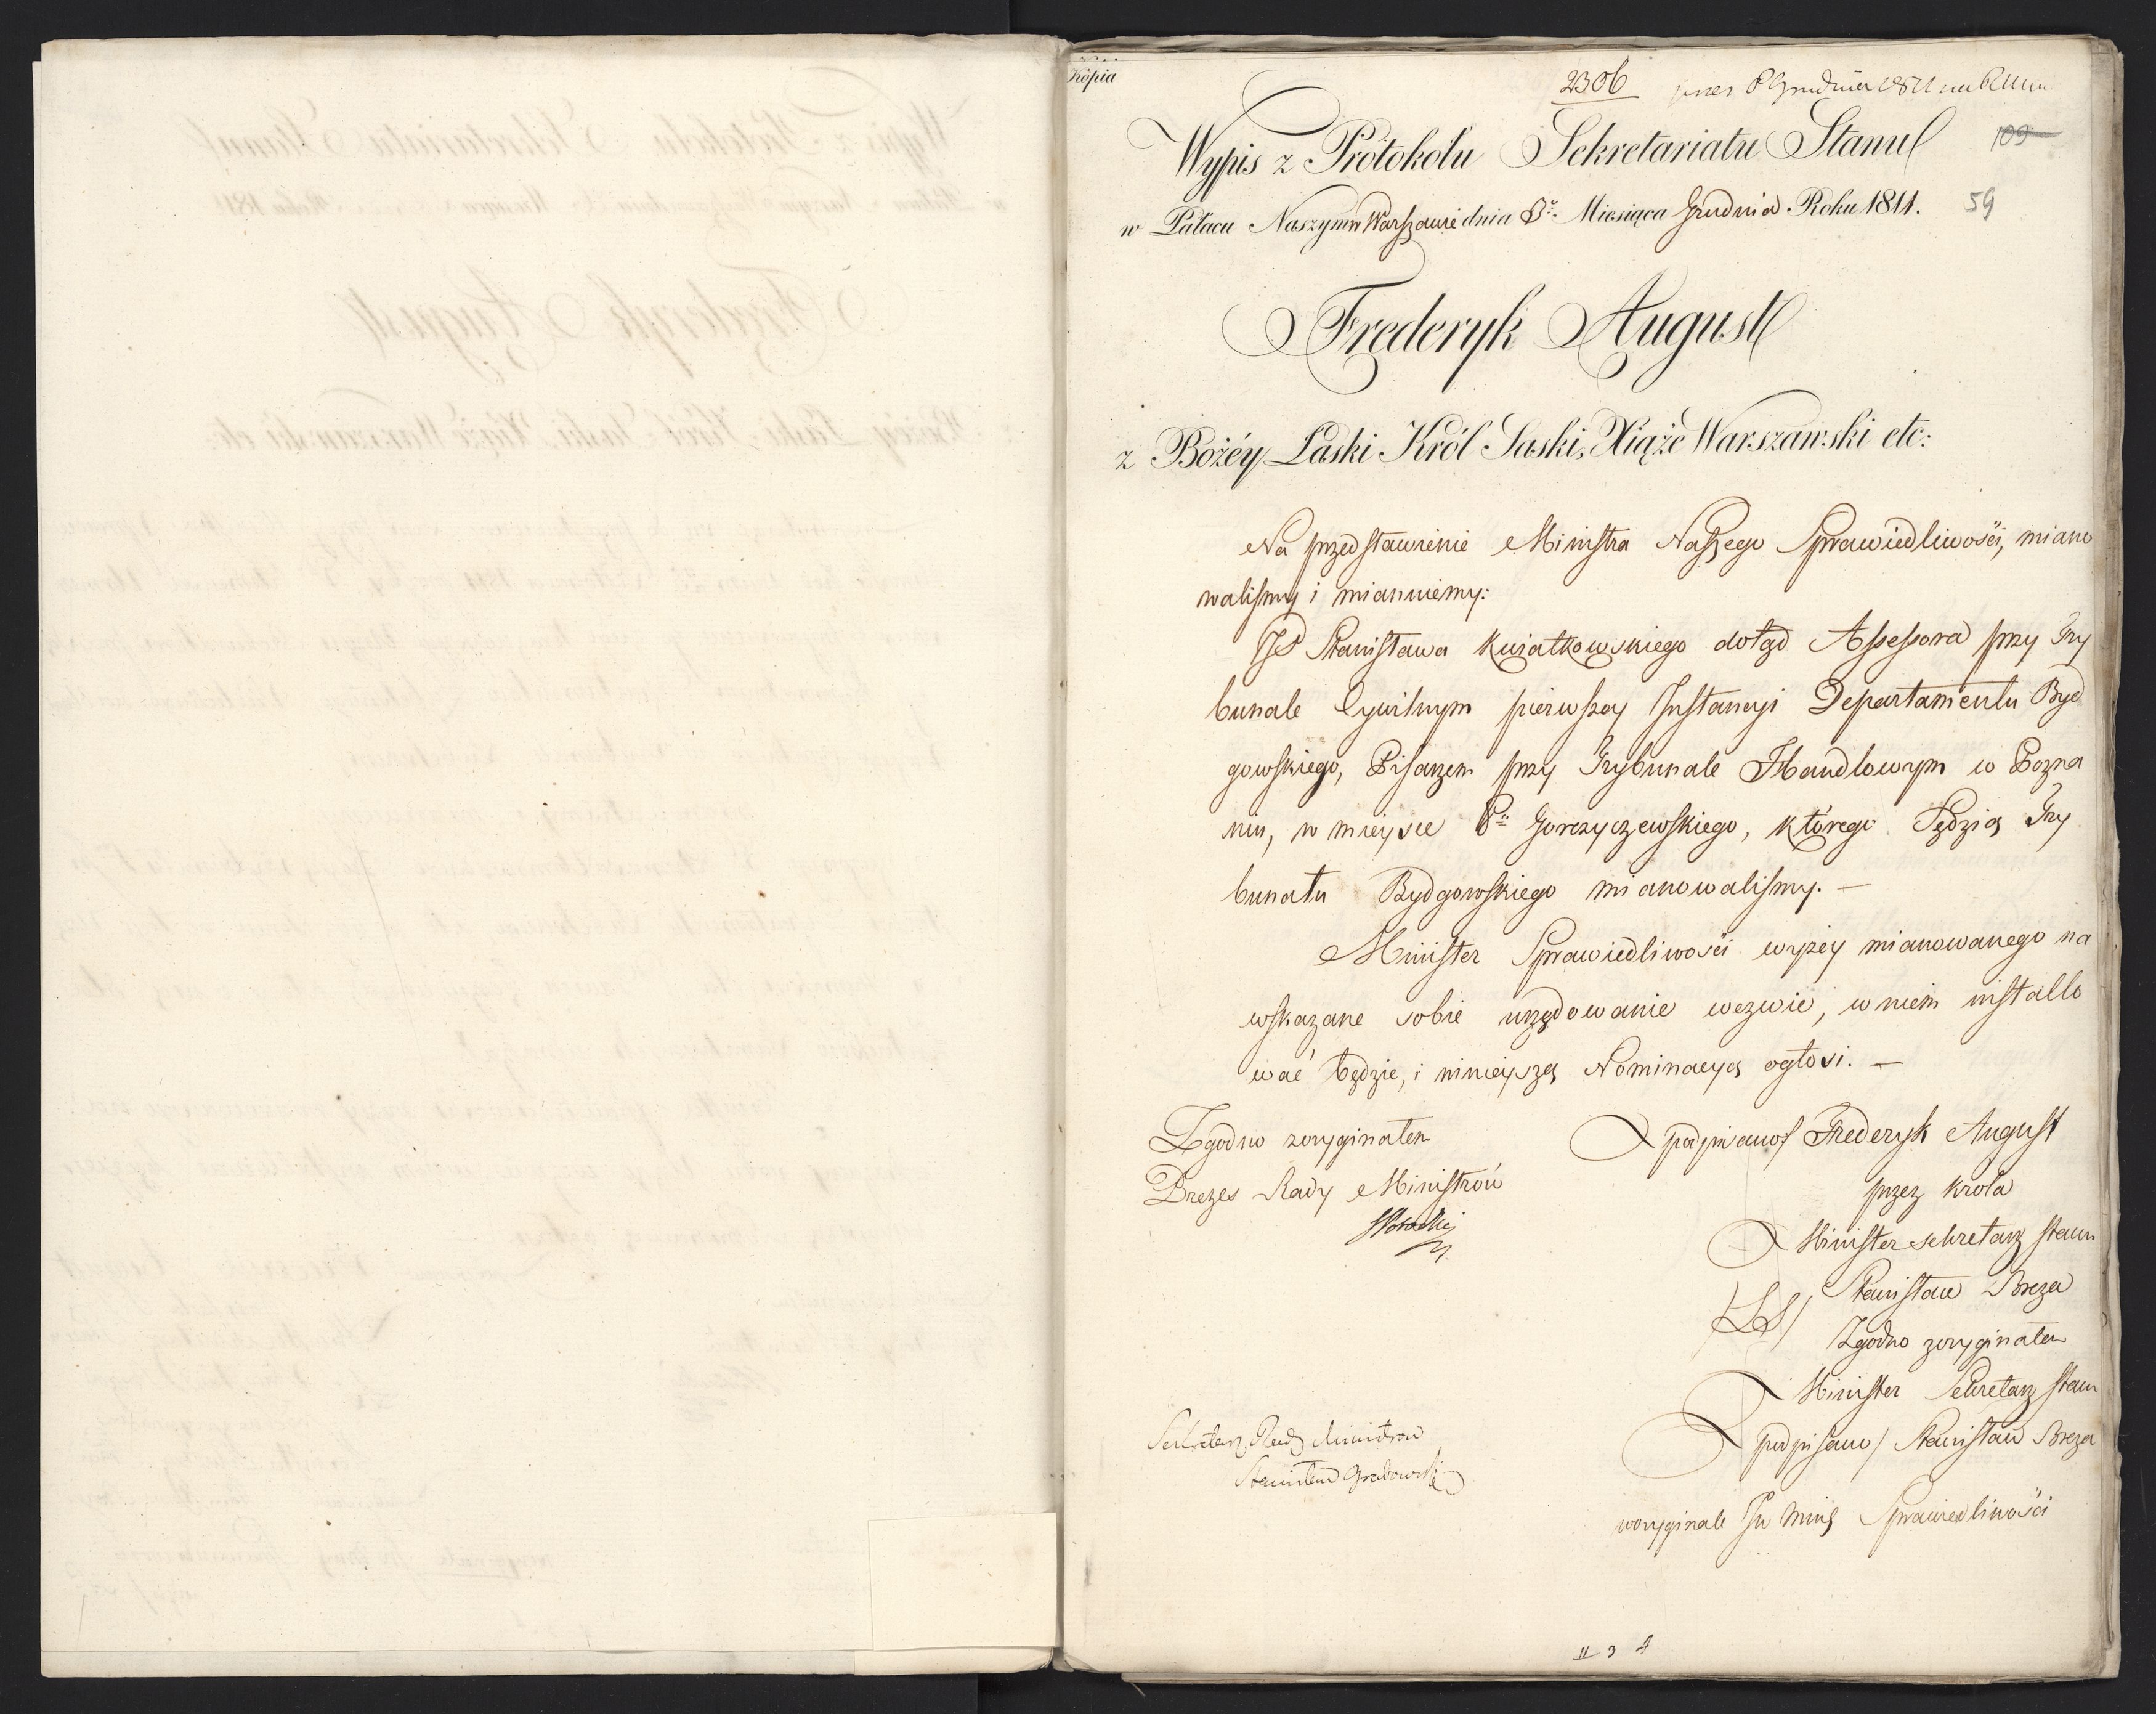 Kopia
2306
Grudnia
Wypis z Protokołu Sekretariatu Stanu
109
w Pałacu Naszym w Warszawie dnia Miesiąca Grudnia Roku 1811.
59
Frederyk August
z Bożéy Łaski Król Saski, Xiąże Warszawski etc:
Na przedstawienie Ministra Naszego Sprawiedliwości, miano
waliśmy i mianuiemy:
JP Stanisława Kwiatkowskiego dotąd Assessora przy Try
bunale Cywilnym pierwszey Instancyi Departamentu Byd
gowskiego, Pisarzem przy Trybunale Handlowym w Pozna
niu, w mieysce Pa Gorczyczewskiego, którego Sędzią Try
bunału Bydgowskiego mianowaliśmy. —
Minister Sprawiedliwości wyżey mianowanego na
wskazane sobie urzędowanie wezwie, w niem installo
wać będzie, i ninieyszą Nominacyą ogłosi. —
Zgodno z oryginałem
podpisano/ Frederyk August
Prezes Rady Ministrów
przez Króla
Minister Sekretarz Stanu
Stanisław Breza
/LS/
Zgodno z oryginałem
Minister Sekretarz Stanu
Sekretarz Rady Ministrów
podpisano/ Stanisław Breza
Stanisław Grabowski
w oryginale Jw Ming Sprawiedliwości
II 3 4